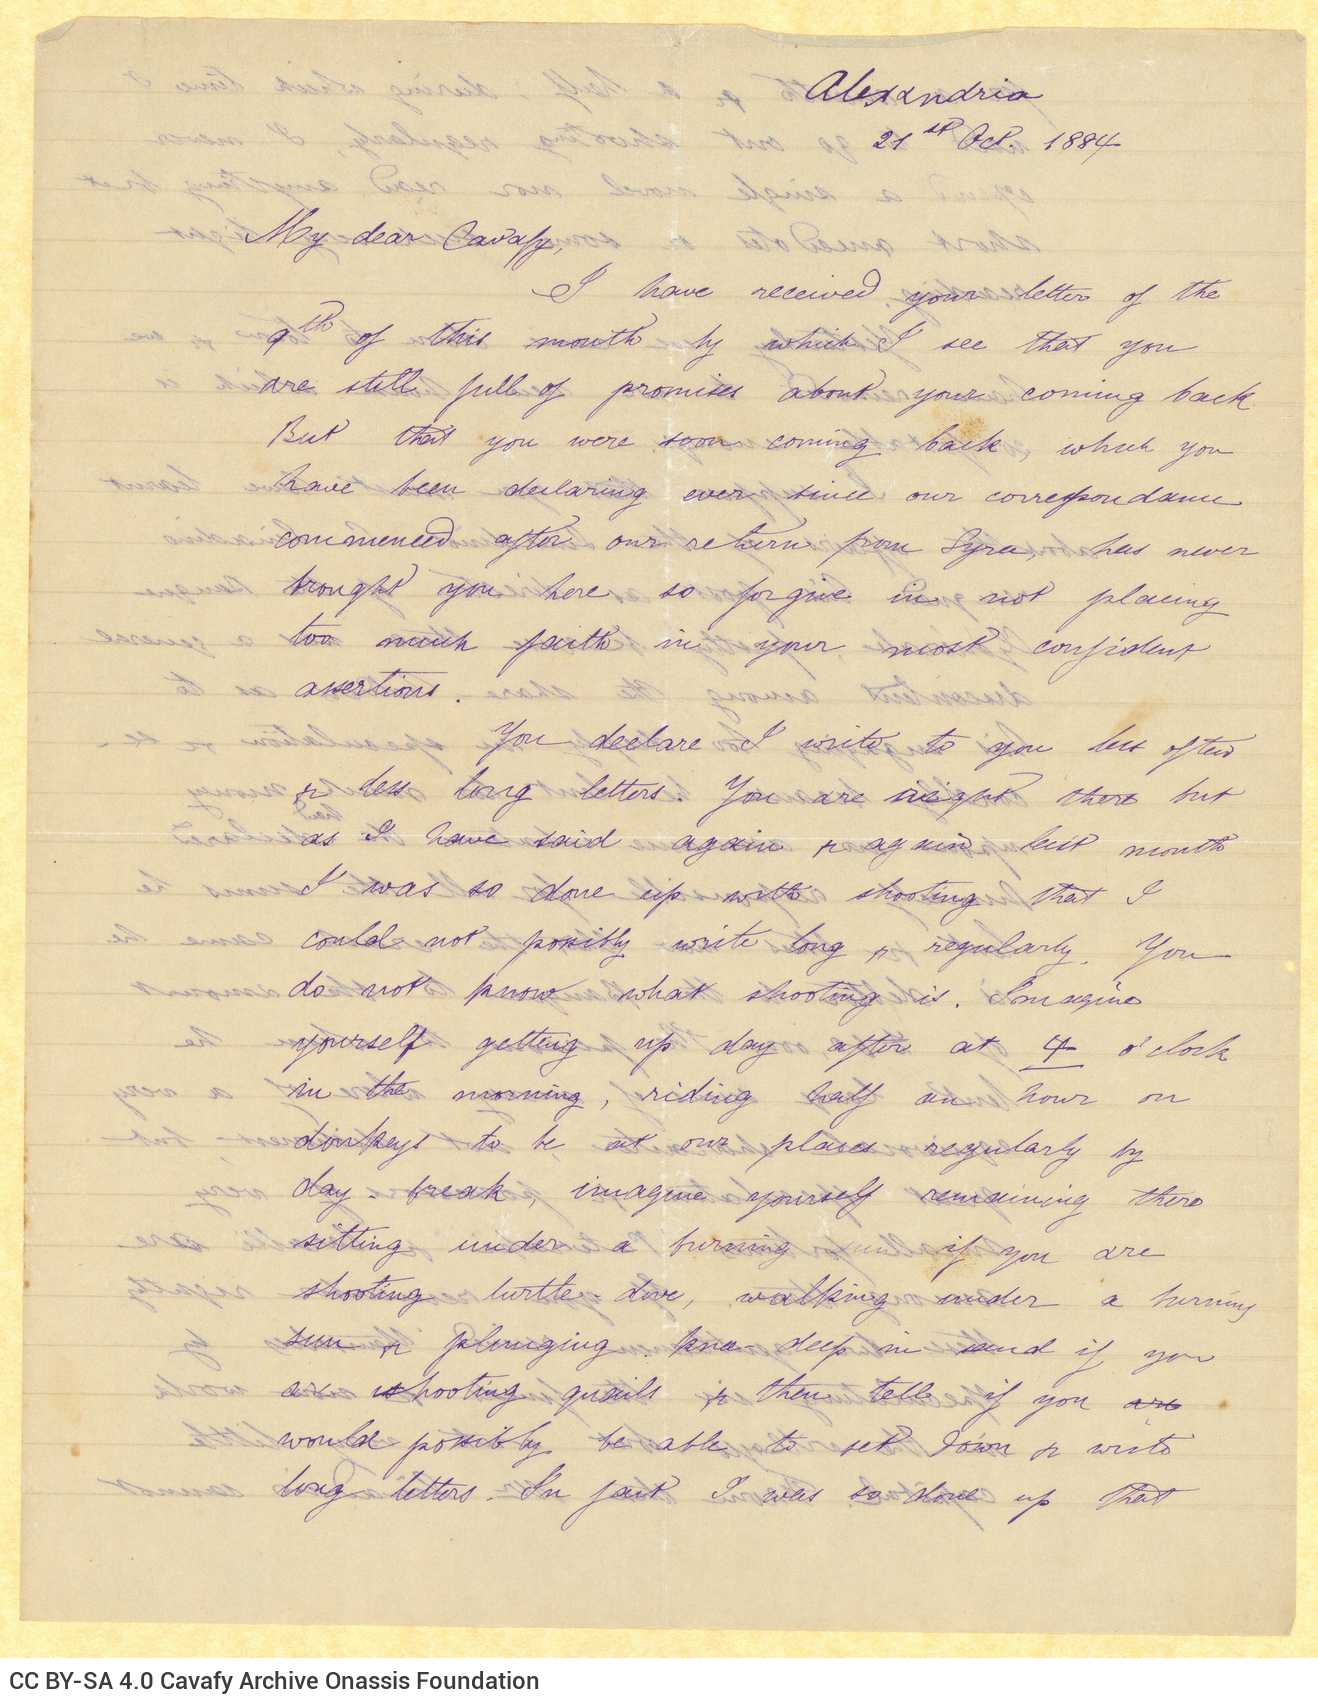 Alexandria
21st Oct. 1884
My dear Cavafy,
I have received your letter of the
9th of this month by which I see that you
are still full of promises about your coming back
But that you were soon coming back, which you
have been declaring ever since our correspondance
commenced after our return from Syra, has never
brought you here so forgive in not placing
too much faith in your most confident
assertions.
You declare I write to you less often
& less long letters. You are right there but
as I have had said again & again, last month
I was so done up with shooting that I
could not possibly write long & regularly. You
do not know what shooting is. Imagine
yourself getting up day after at 4 o'clock
in the morning, riding half an hour on
donkeys to be at our places regularly by
day-break, imagine yourself remaining there
sitting under a burning sun if you are
shooting turtle-dove, walking under a burning
sun & plunging knee-deep in sand if you
are shooting quails & then tell if you are
would possibly be able to set down & write
long letters. In fact I was so done up that
CC BY-SA 4.0 Cavafy Archive Onassis Foundation